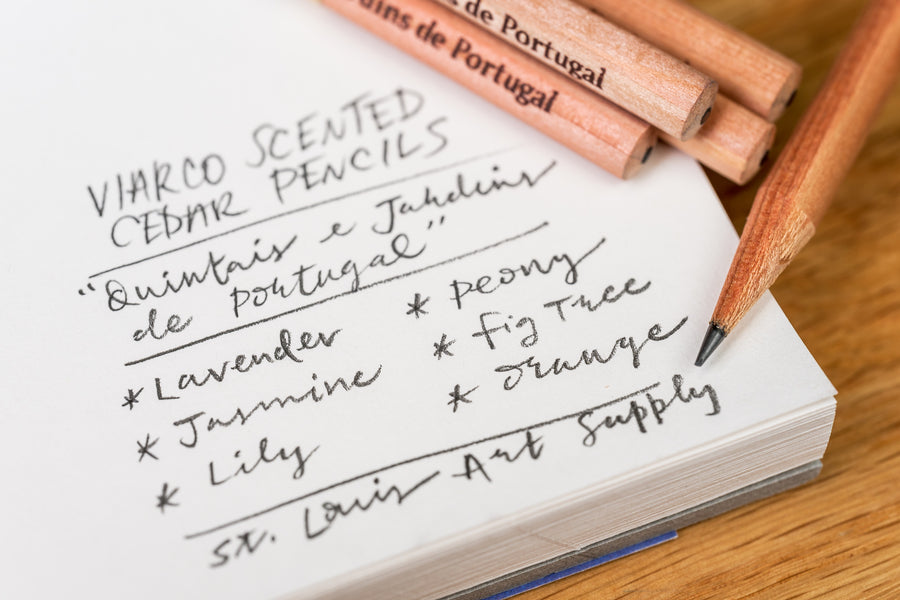 dins de Portugal
s de Portugal
VIARCO SCENTED
CEDAR PENCILS
"Quintais e Jardins
de Portugal"
* Lavender
* Jasmine
* Lily
* peony
* fig Tree
* orange
St. Louis Art Supply